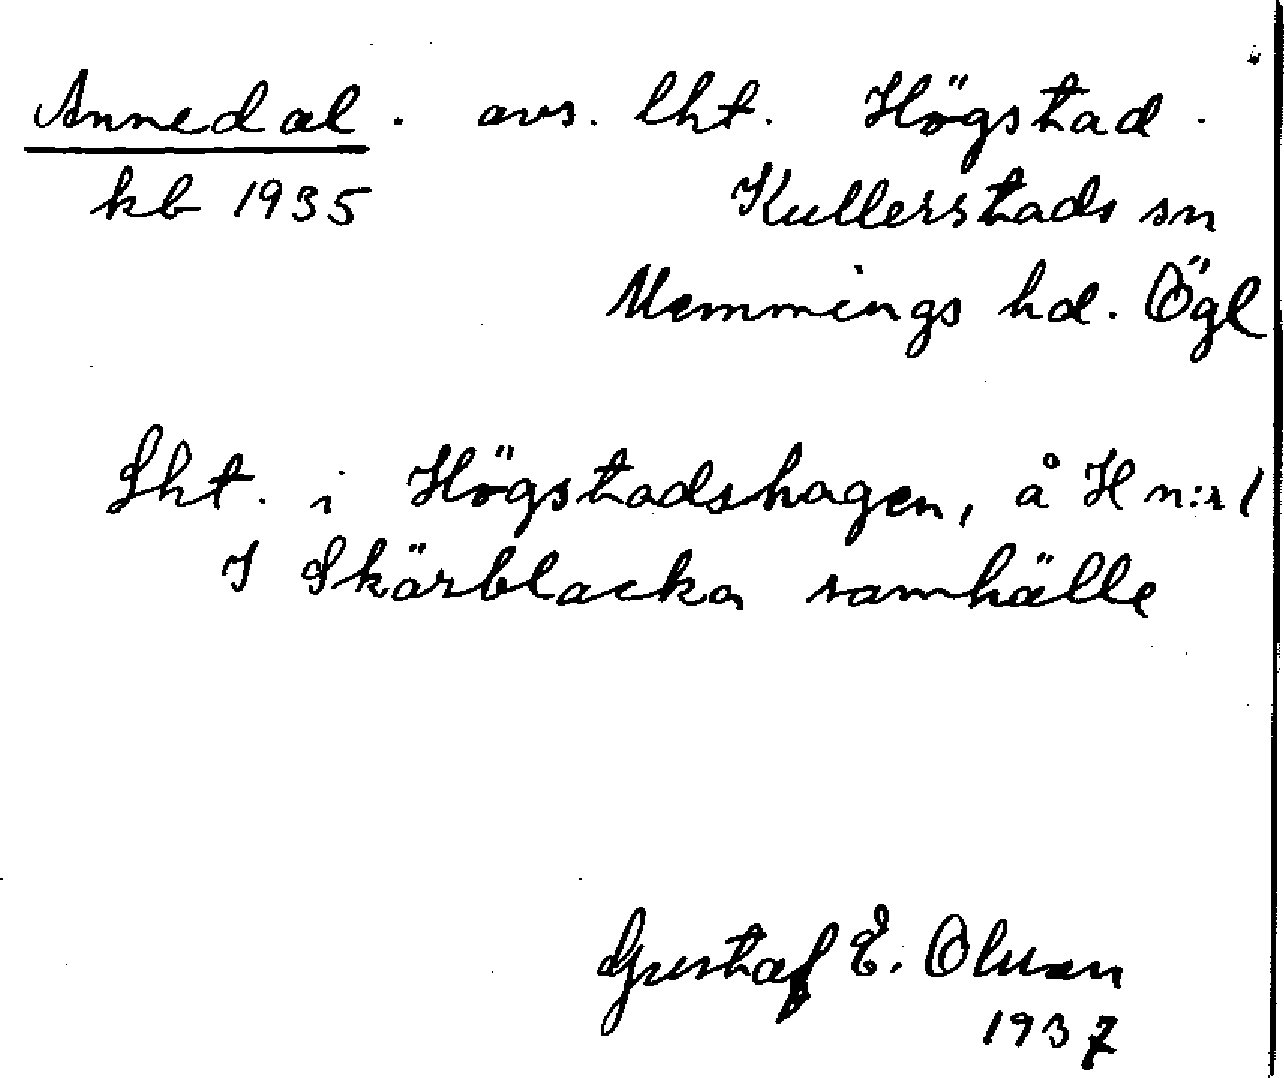 Annedal. avs. lht. Högstad.
kb 1935 Kullerstads sn
Memmings hd. Ögl
Lht. i Högstadshagen, å H n:r 1
I Skärblacka samhälle
Gustaf E. Olsson
1937